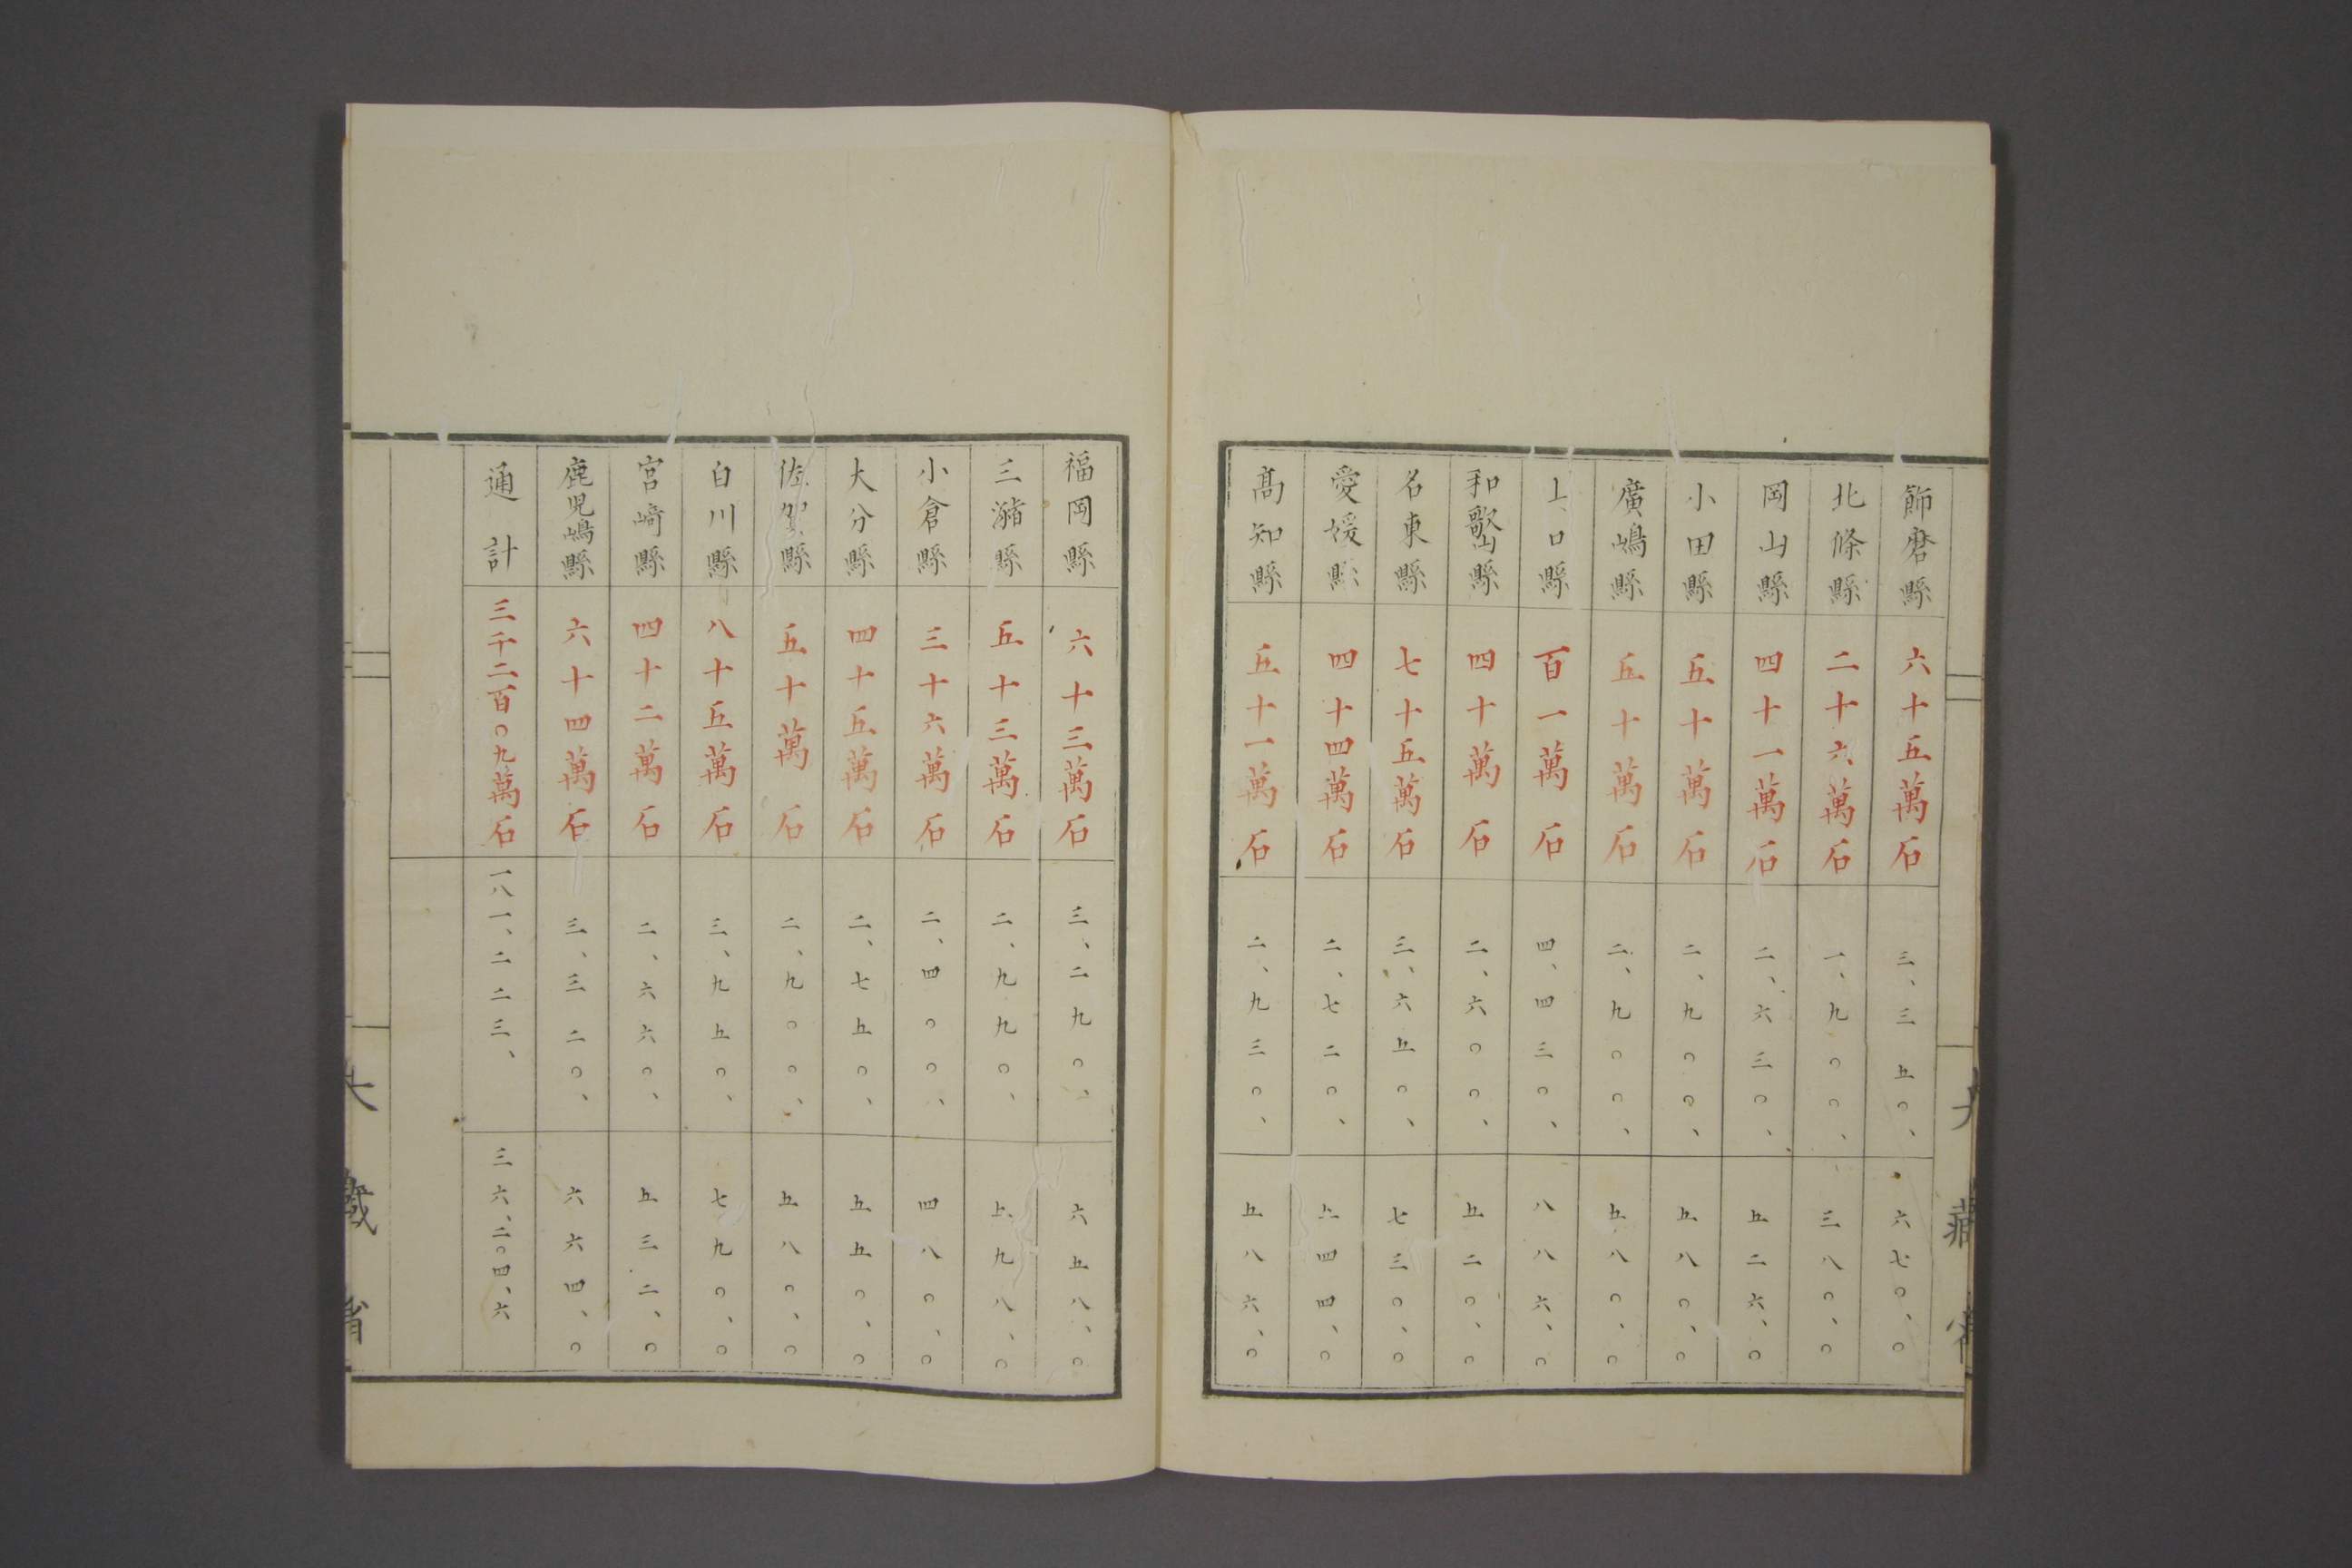 飾磨縣 六十五萬石 三、三五〇、 六七〇、〇
北條縣 二十六萬石 一、九〇〇、 三八〇、〇
岡山縣 四十一萬石 二、六三〇、 五二六、〇
小田縣 五十萬石 二、九〇〇、 五八〇、〇
廣嶋縣 五十萬石 二、九〇〇、 五八〇、〇
口縣 百一萬石 四、四三〇、 八八六、〇
和歌山縣 四十萬石 二、六〇〇、 五二〇、〇
名東縣 七十五萬石 三、六五〇、 七三〇、〇
愛媛縣 四十四萬石 二、七二〇、 四四、〇
髙知縣 五十一萬石 二、九三〇、 五八六、〇
福岡縣 六十三萬石 三、二九〇、 六五八、〇
三潴縣 五十三萬石 二、九九〇、 五九八、〇
小倉縣 三十六萬石 二、四〇〇、 四八〇、〇
大分縣 四十五萬石 二、七五〇、 五五〇、〇
佐賀縣 五十萬石 二、九〇〇、 五八〇、〇
白川縣 八十五萬石 三、九五〇、 七九〇、〇
宮崎縣 四十二萬石 二、六六〇、 五三二、〇
鹿児嶋縣 六十四萬石 三、三二〇、 六六四、〇
通計 三千二百〇九萬石 一八一、二二三、 三六、二〇四、六